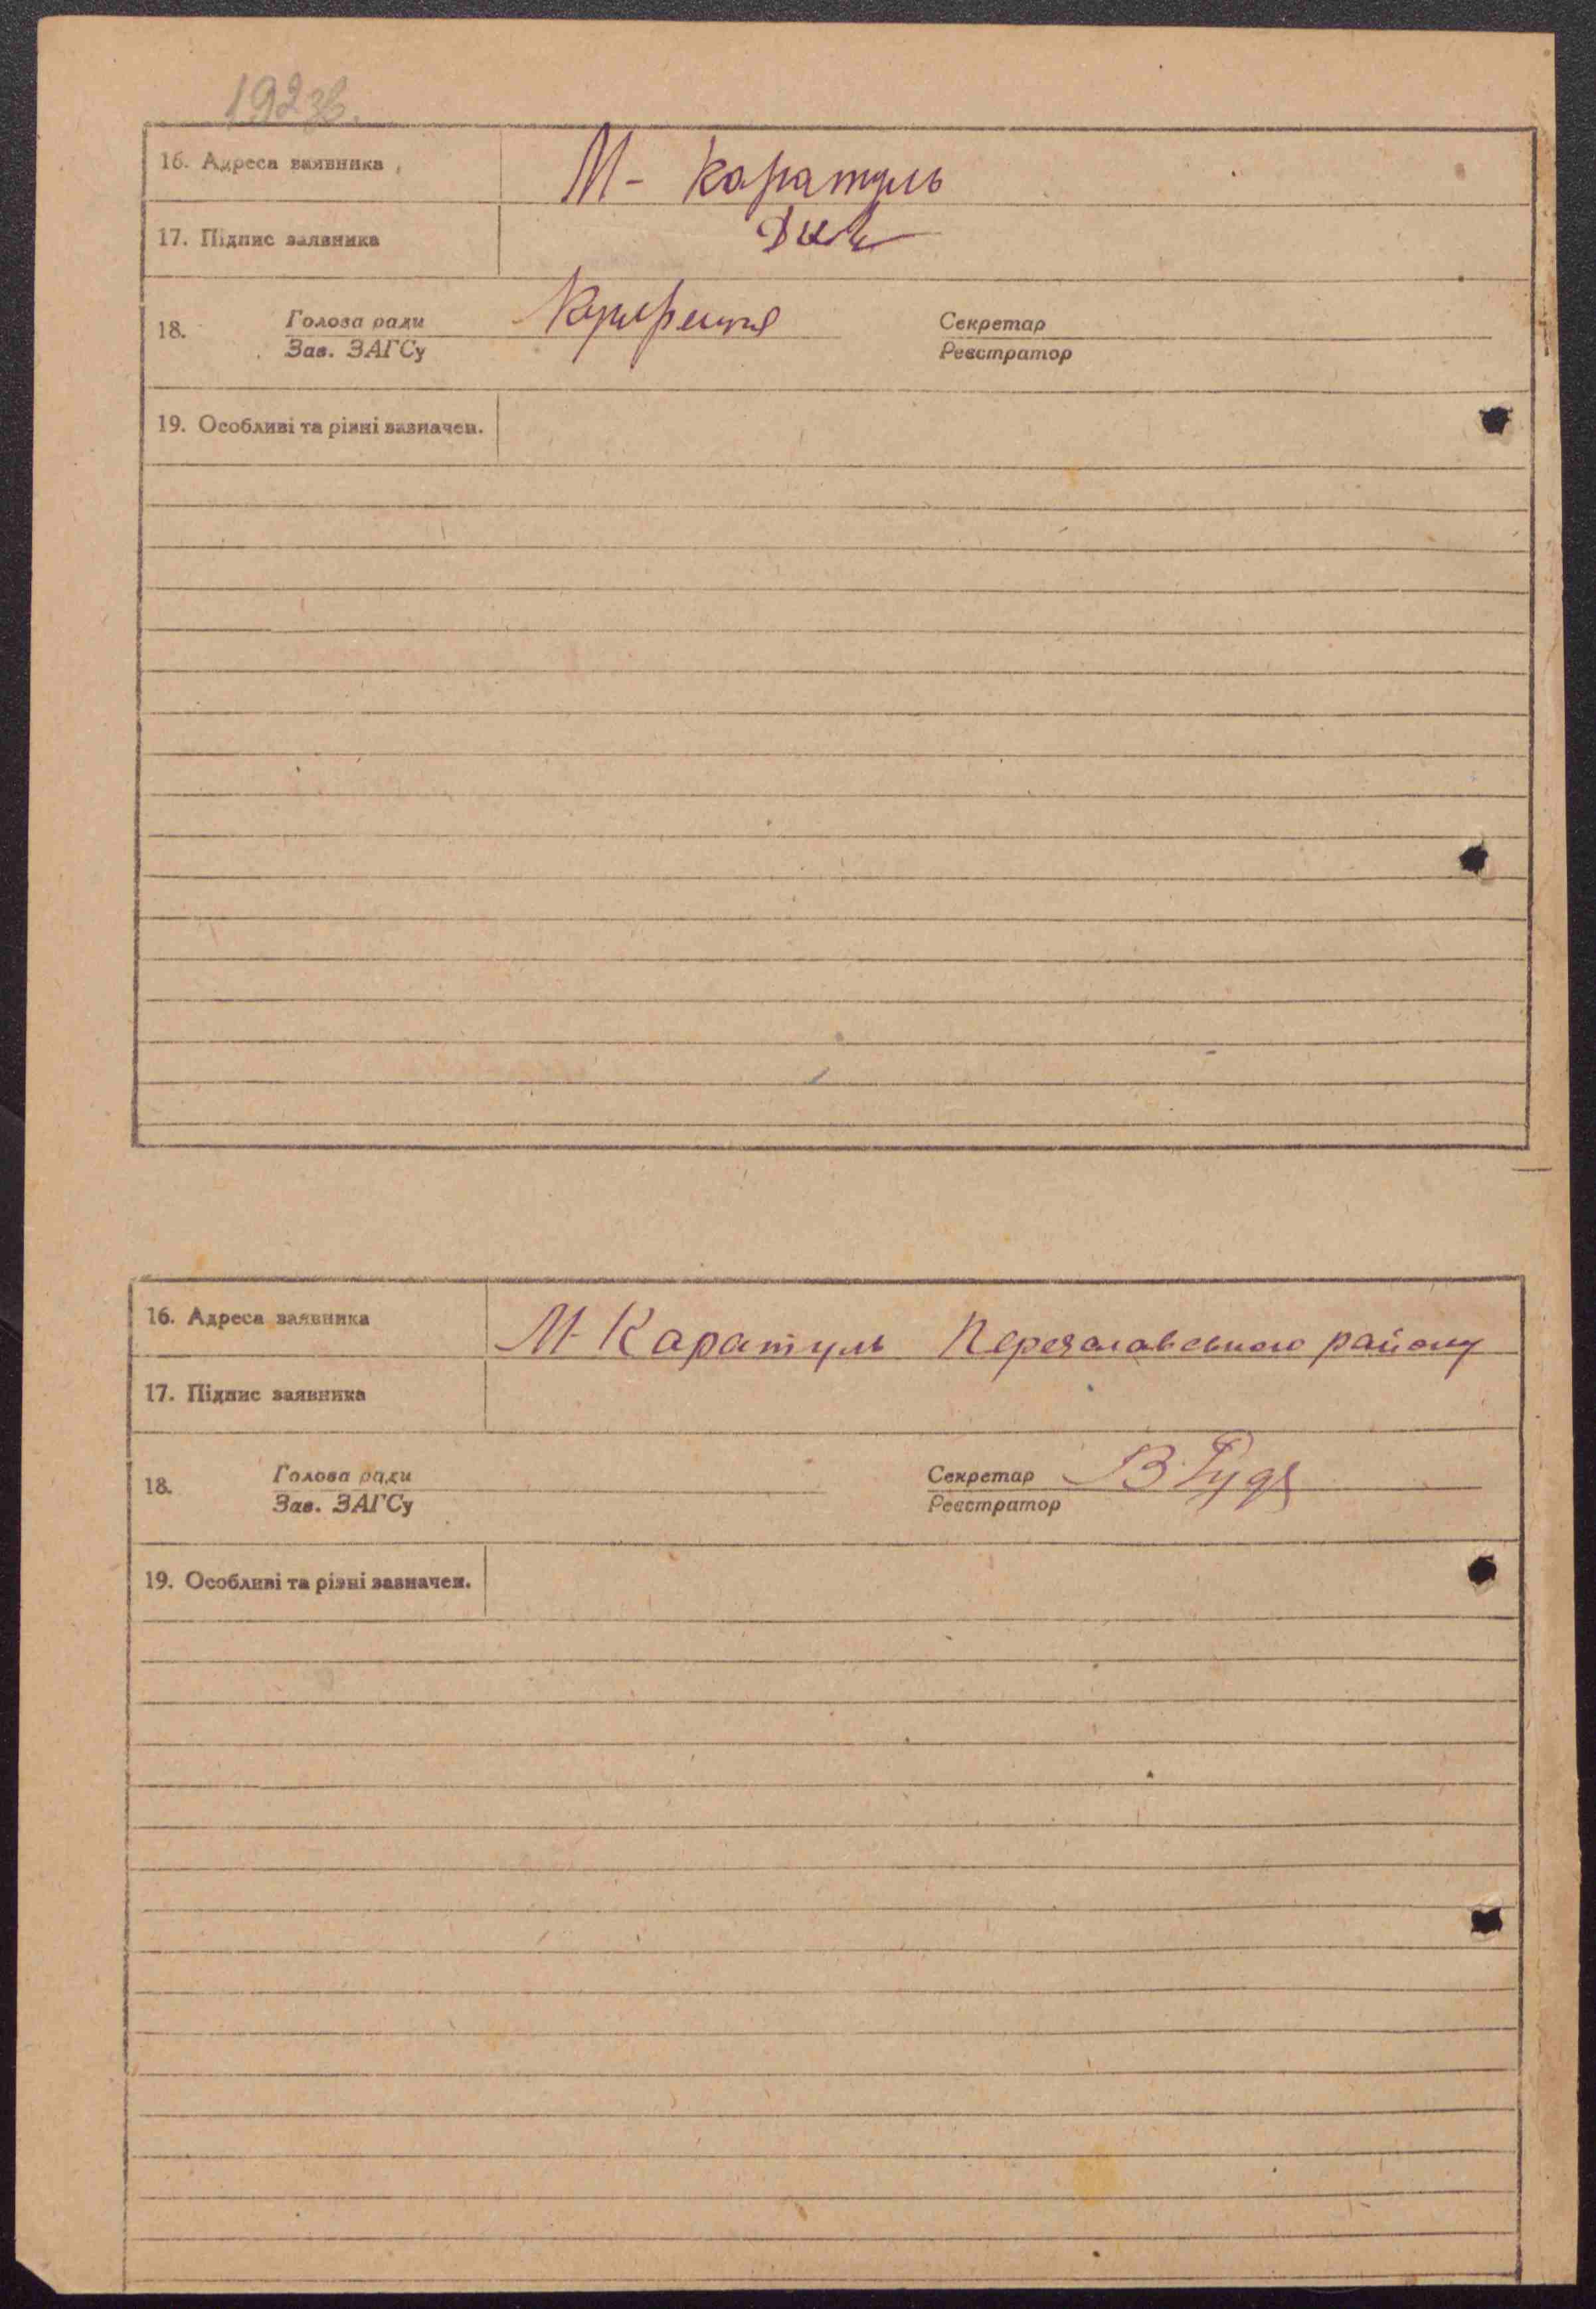 192зв.
16. Адреса заявника М- Каратуль
17. Підпис заявника
18. Голова ради Секретар
Зав. ЗАГСу Реєстратор
19. Особливі та різні зазначен.
16. Адреса заявника М-Каратуль Переяславського району
17. Підпис заявника
18. Голова ради Секретар В Рудя
Зав. ЗАГСу Реєстратор
19. Особливі та різні зазначен.